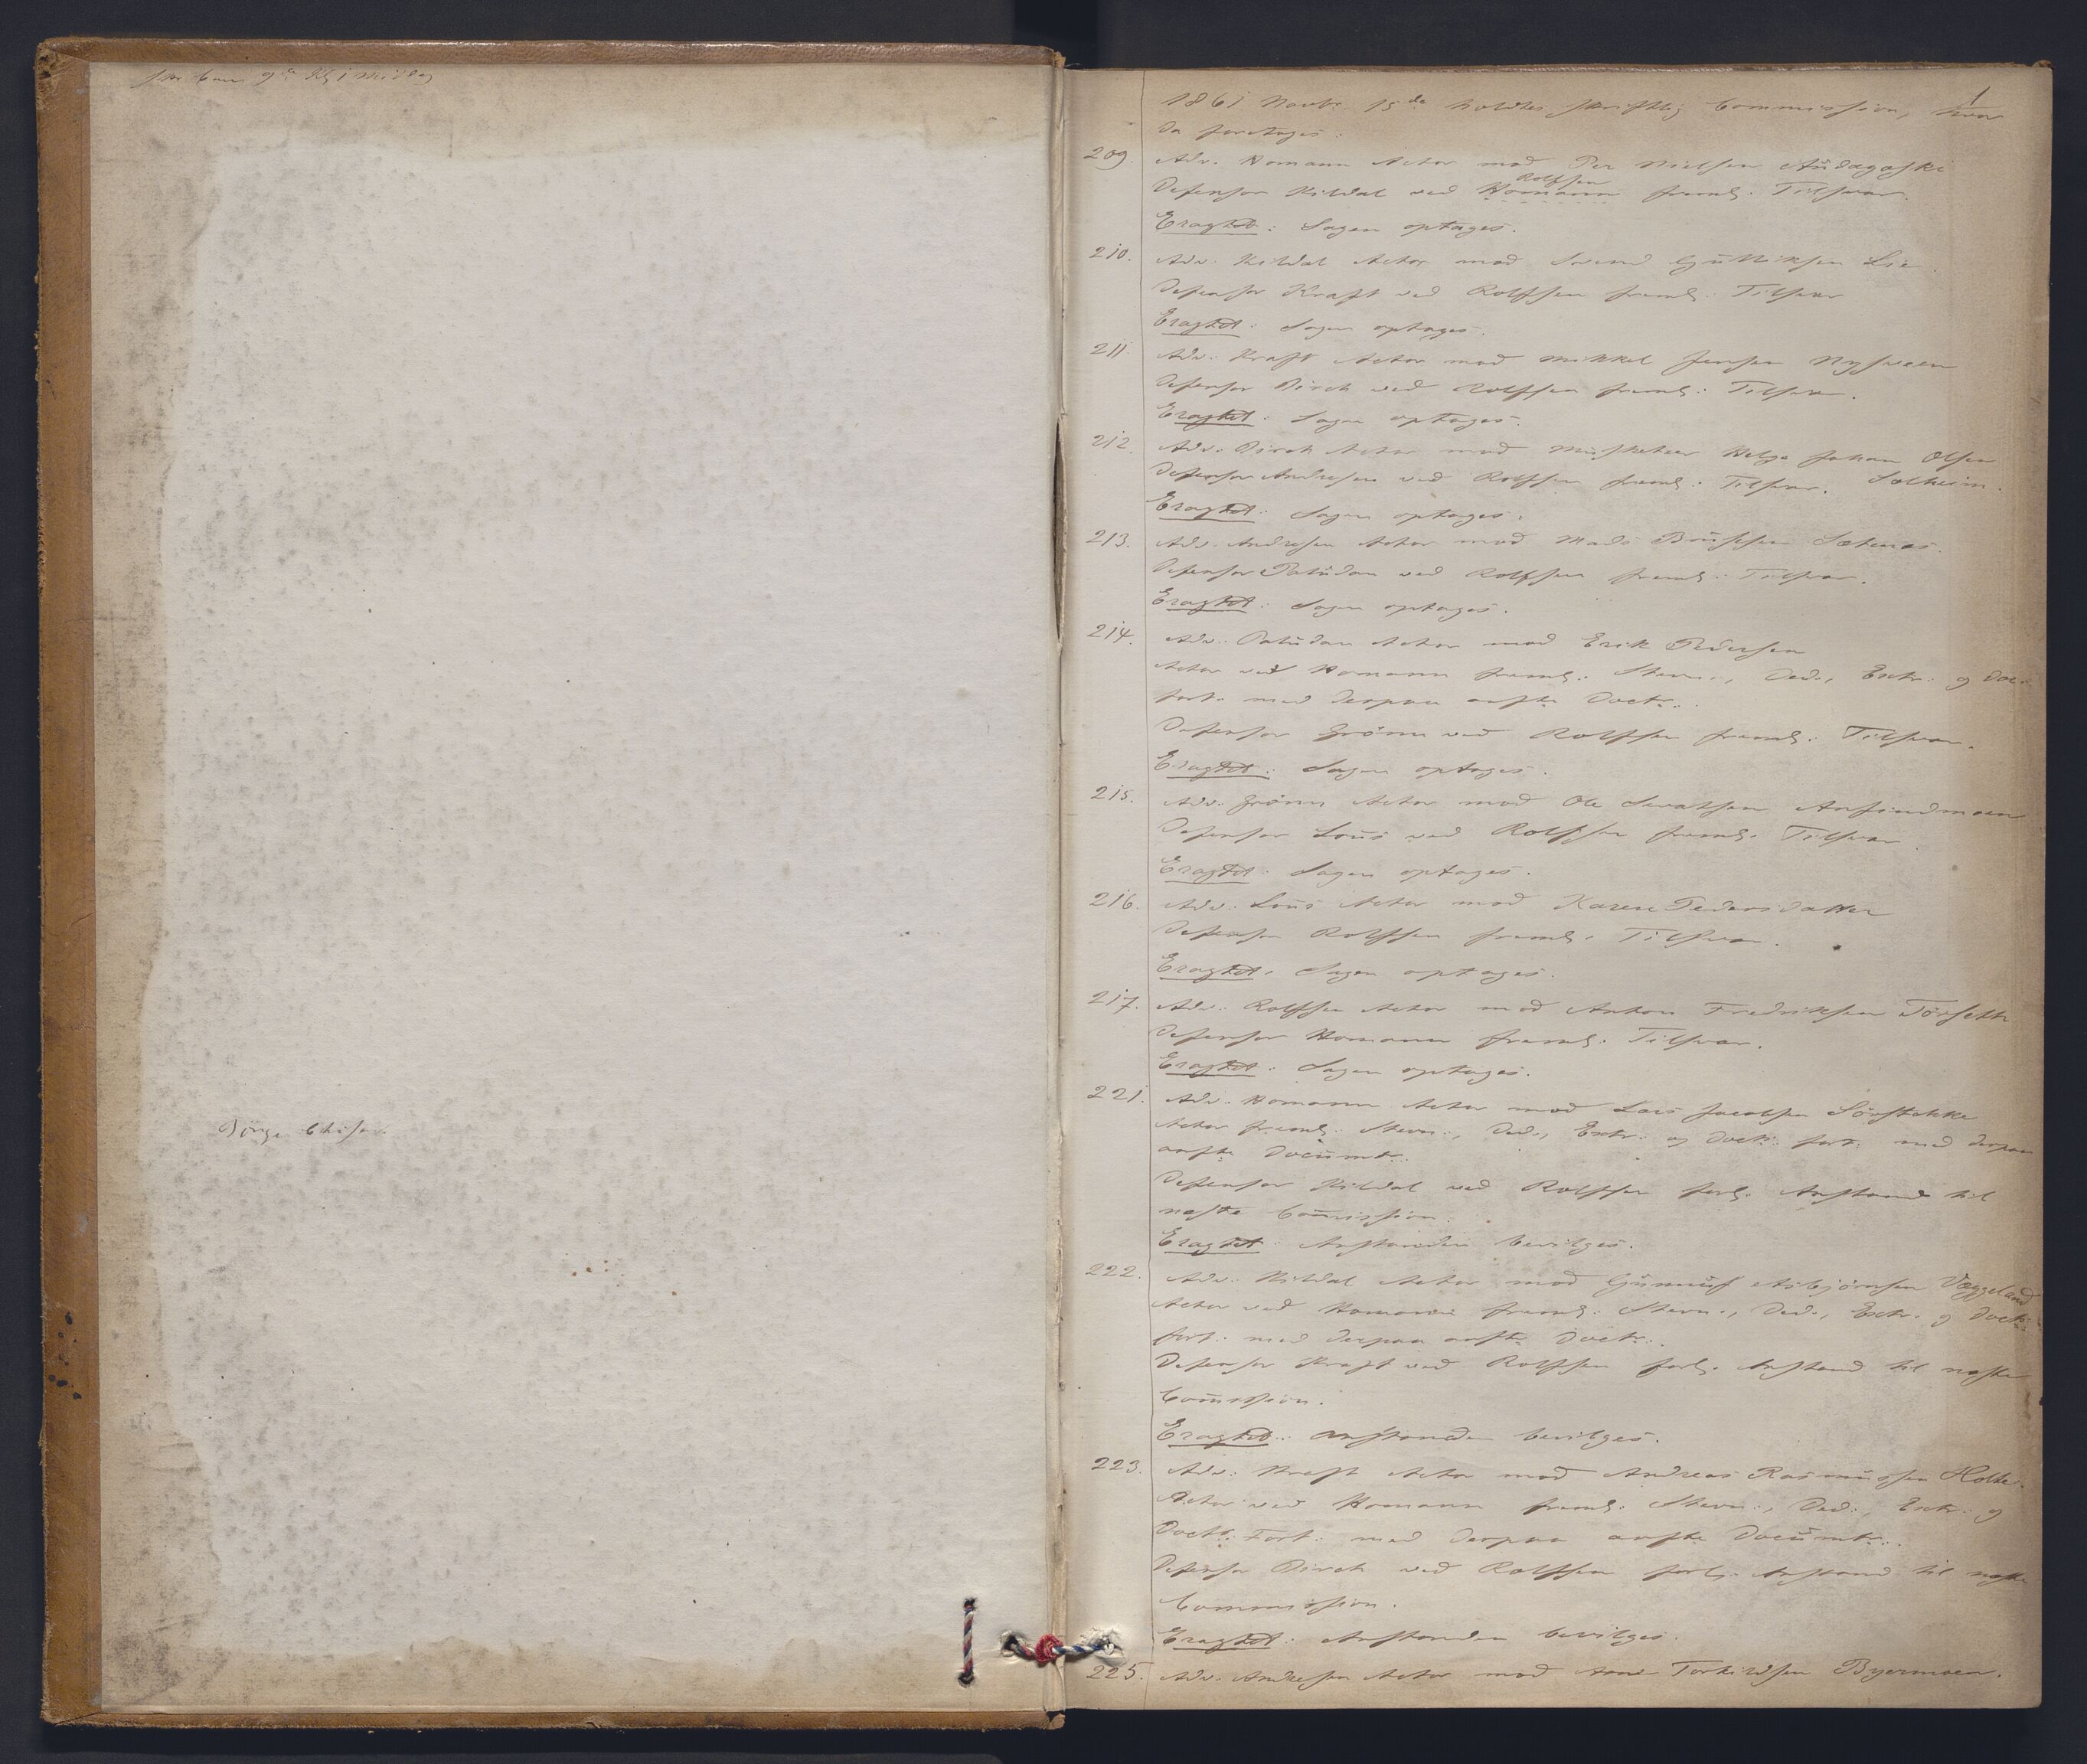 Børge
1
1861 Novbr. 15de holdtes skriftlig Commission, hvor
da foretoges:
209. Adv. Homann Actor mod Per Nielsen
Defensor Kildal ved Homann Rolfsen freml. Tilsvar.
Eragtet: Sagen optages.
210. Adv. Kildal Actor mod Svend Gulliksen Lie.
Defensor Kraft ved Rolfsen freml. Tilsvar
Eragtet: Sagen optages.
211. Adv. Kraft Actor mod Mikkel Jensen Nysveen
Defensor Birch ved Rolfsen freml. Tilsvar.
Eragtet: Sagen optages.
212. Adv. Birch Actor mod Musketeer Helge Johan Olsen
Defensor Andresen ved Rolfsen freml. Tilsvar. Solheim.
Eragtet: Sagen optages.
213. Adv. Andresen Actor mod Mads
Defensor Paludan ved Rolfsen freml. Tilsvar.
Eragtet: Sagen optages.
214. Adv. Paludan Actor mod Erik Pedersen
Actor ved Homann freml. Stevn., Ded., Extr. og Doc.
fort. med derpaa anfte Doctr.
Defensor Grönn ved Rolfsen freml. Tilsvar.
Eragtet: Sagen optages.
215. Adv. Grönn Actor mod Ole Anfindmoen
Defensor Lous ved Rolfsen freml. Tilsvar
Eragtet: Sagen optages.
216. Adv. Lous Actor mod Karen Pedersdatter
Defensor Rolfsen freml. Tilsvar.
Eragtet: Sagen optages.
217. Adv. Rolfsen Actor mod Anton Fredriksen Törseth
Defensor Homann freml. Tilsvar.
Eragtet: Sagen optages.
221. Adv. Homann Actor mod Lars Jacobsen
Actor freml. Stevn., Ded., Extr. og Doctr. fort. med derpaa
anfte Documtr.
Defensor Kildal ved Rolfsen forl. Anstand til
næste Commission.
Eragtet: Anstanden bevilges.
222. Adv. Kildal Actor mod Gunnuf Asbjörnsen Væggeland
Actor ved Homann freml. Stevn., Ded., Extr. og Doctr.
fort. med derpaa anfte Doctr.
Defensor Kraft ved Rolfsen forl. Anstand til næste
Commission.
Eragtet: Anstanden bevilges.
223. Adv. Kraft Actor mod Andreas Rasmussen Holte.
Actor ved Homann freml. Stevn., Ded., Extr. og
Doctr. Fort. med derpaa anfte Documtr.
Defensor Birch ved Rolfsen forl. Anstand til næste
Commission.
Eragtet: Anstanden bevilges.
225. Adv. Andresen Actor mod Torkildsen Byermoen.